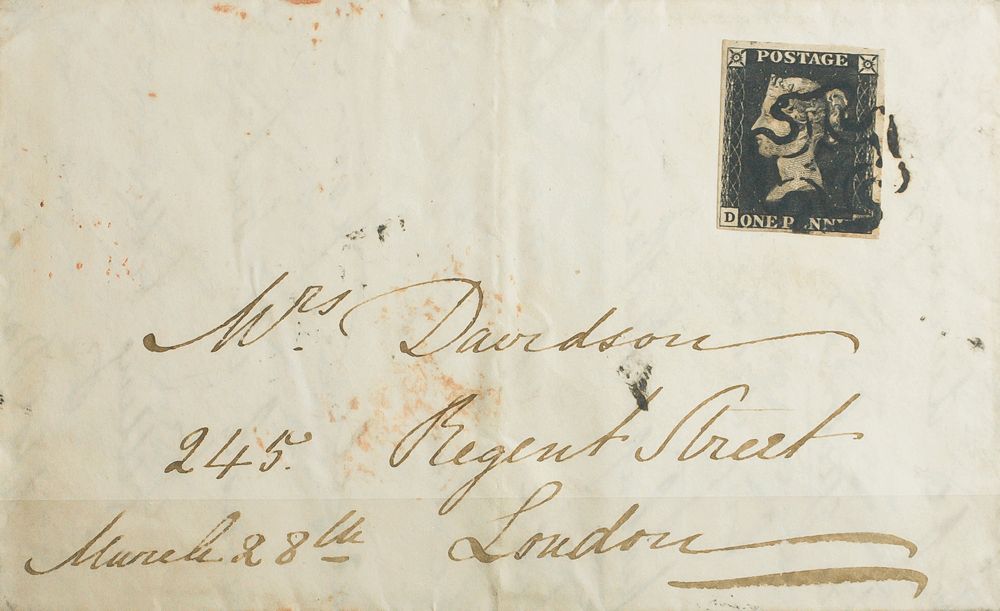 POSTAGE
D ONE PENNY
Mrs Davidson
245. Regent Street
London
March 28th